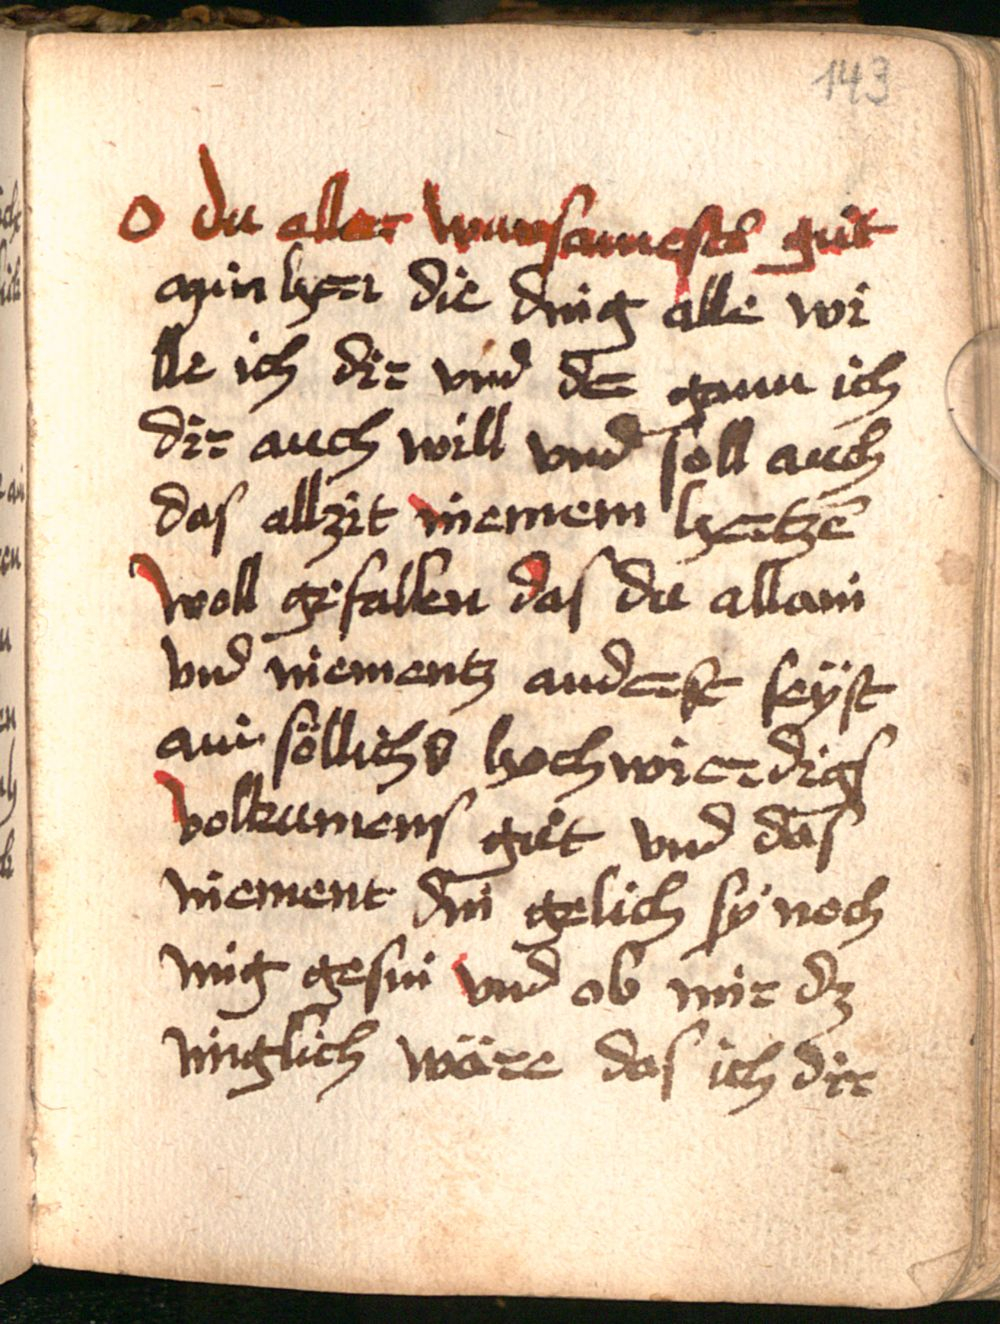 143
O du aller wunsamestes guͤt
min her die ding alle wi
lle ich dir vnd dē gunn ich
dir auch will vnd soll auch
das allzit mienem hertzē
woll gefallen das du allain
vnd niementz anderst seÿst
ain söllichs hochwierdigs
volkumens guͤt vnd das
niement din gelich sÿ noch
mig gesin vnd ob mir dz
miglich wäre das ich dir